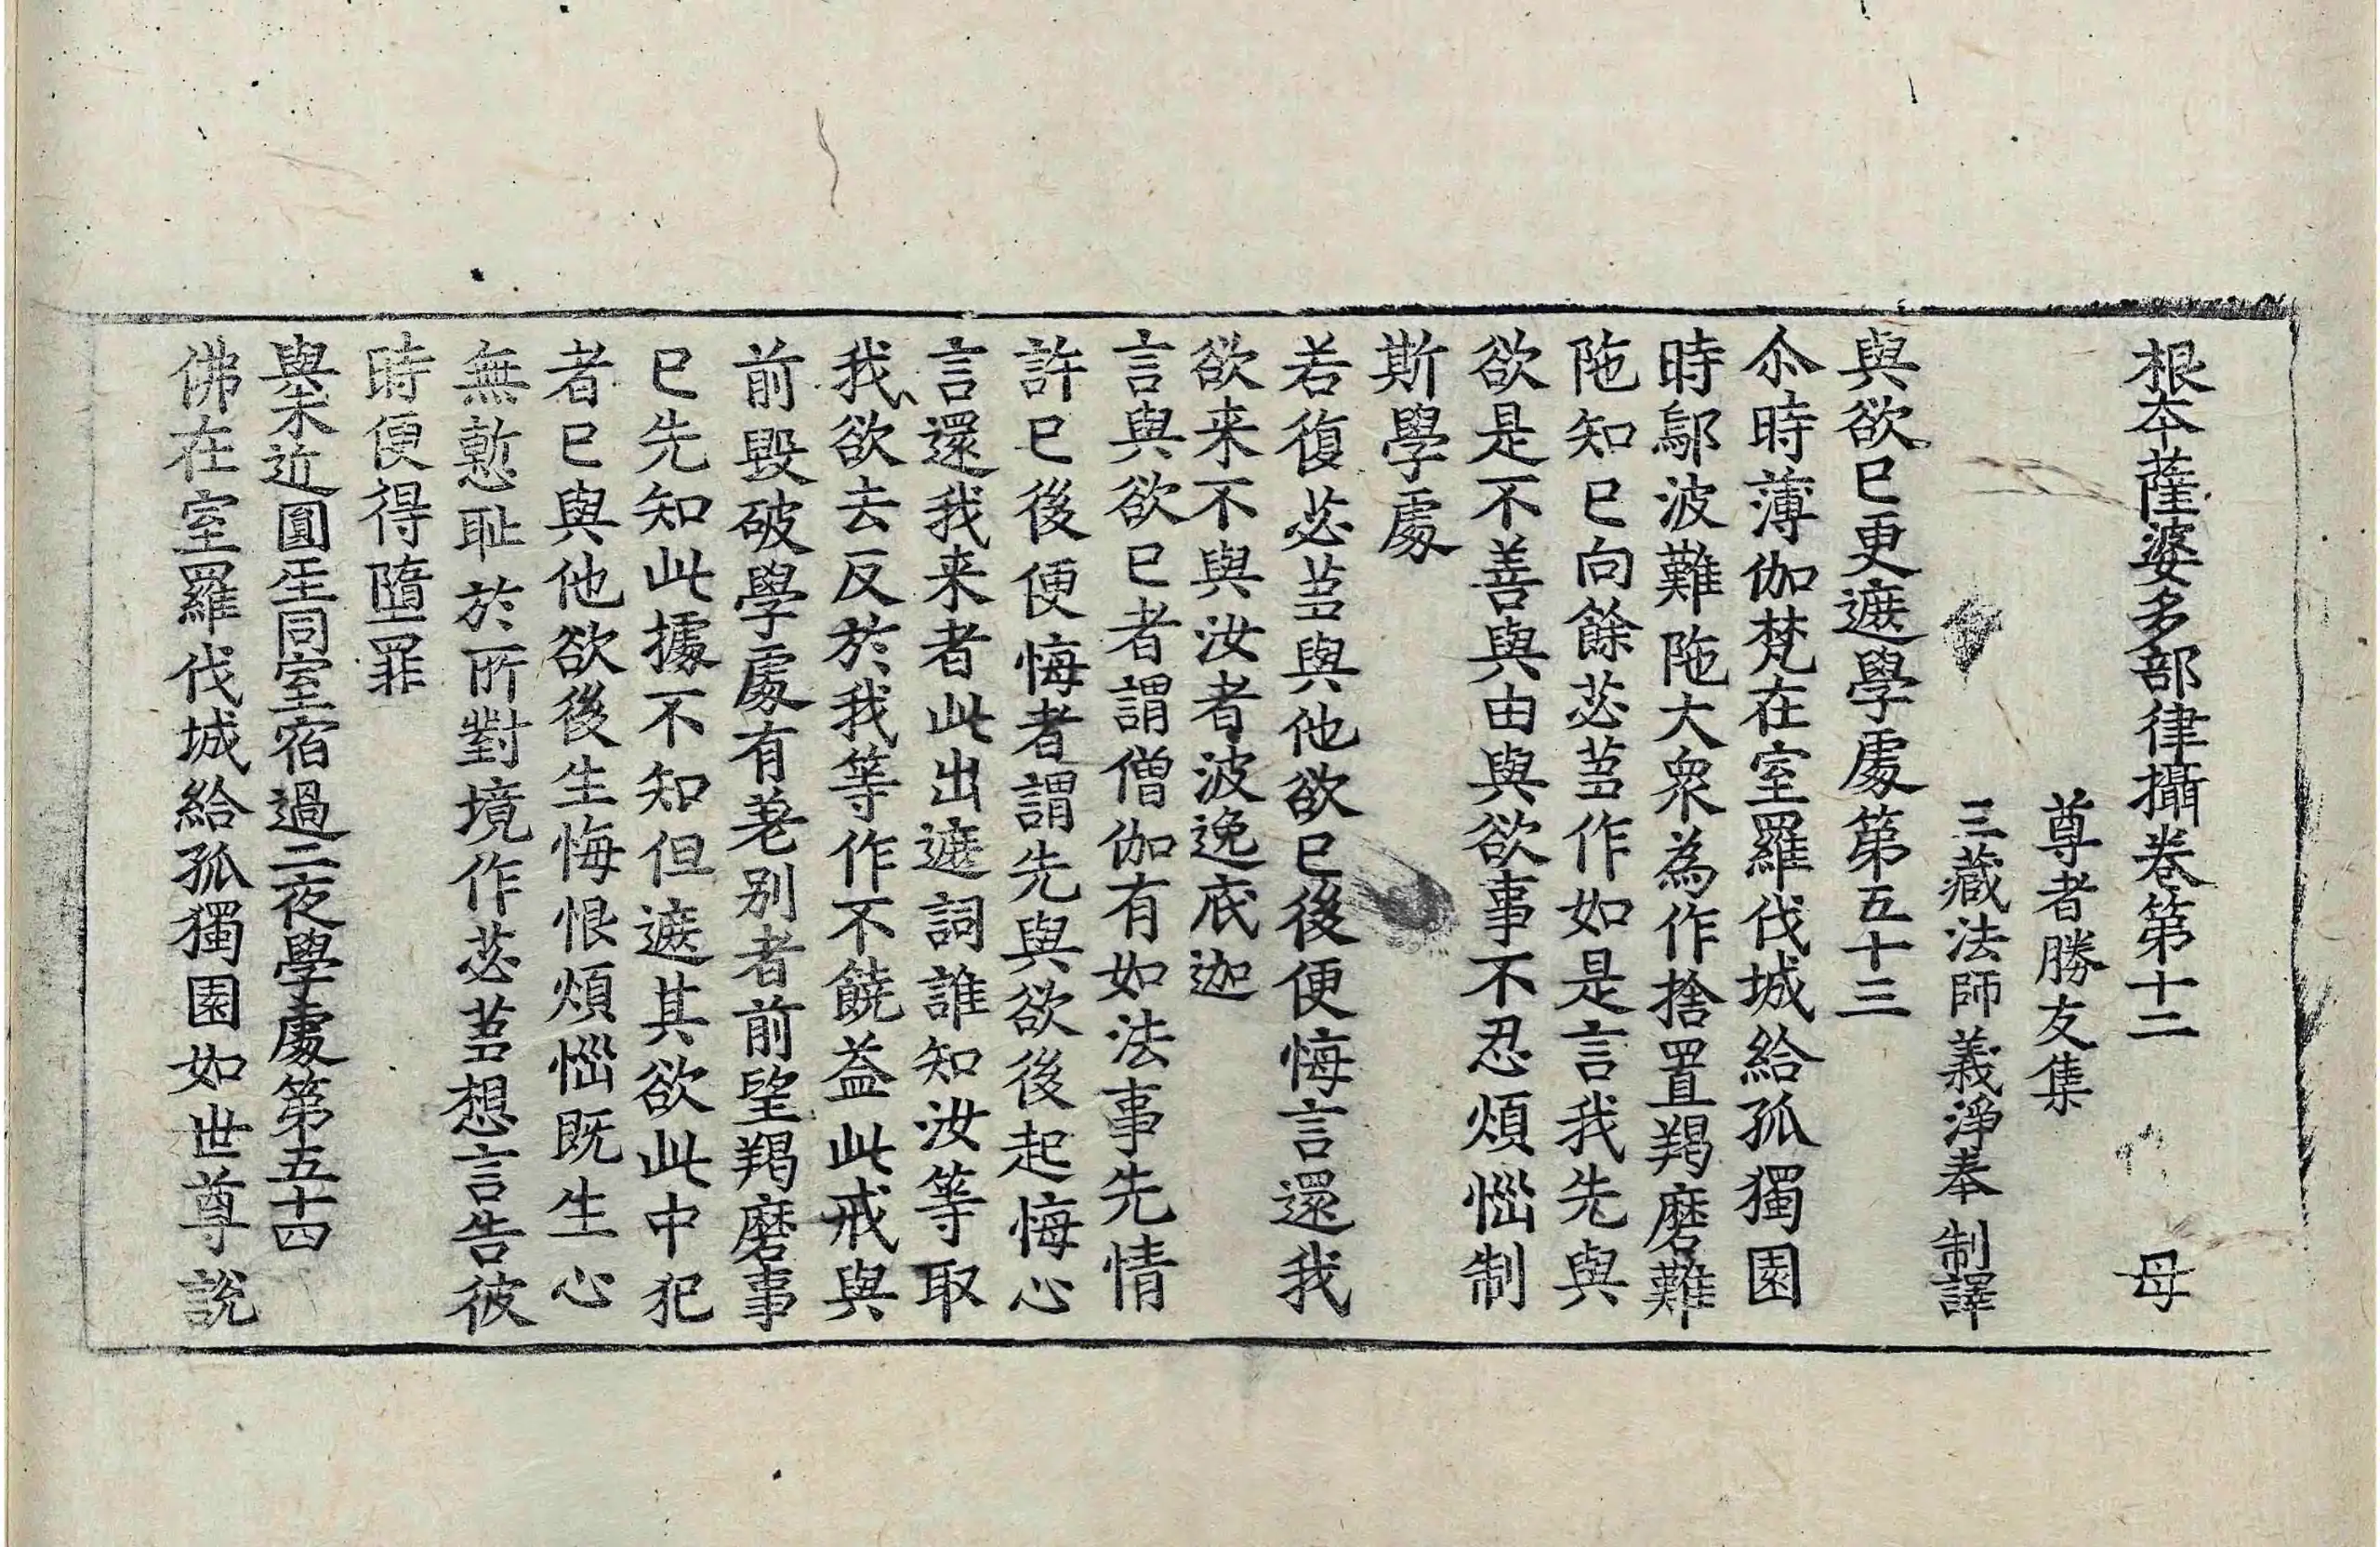 根夲薩婆多部律攝卷第十二 母
尊者勝友集
三藏法師義淨奉 制譯
與欲已更遮學處第五十三
尒時薄伽梵在室羅伐城給孤獨園
時鄔波難陁大衆為作捨置羯磨難
陁知已向餘苾芻作如是言我先與
欲是不善與由與欲事不忍煩惱制
斯學處
若復苾芻與他欲已後便悔言還我
欲来不與汝者波逸底迦
言與欲已者謂僧伽有如法事先情
許已後便悔者謂先與欲後起悔心
言還我来者此出遮詞誰知汝等取
我欲去反於我等作不饒益此戒與
前毀破學處有差別者前望羯磨事
已先知此據不知但遮其欲此中犯
者已與他欲後生悔恨煩惱既生心
無慙耻於所對境作苾芻想言告彼
時便得墮罪
與未近圓人同室宿過二夜學處第五十四
佛在室羅伐城給孤獨園如世尊說